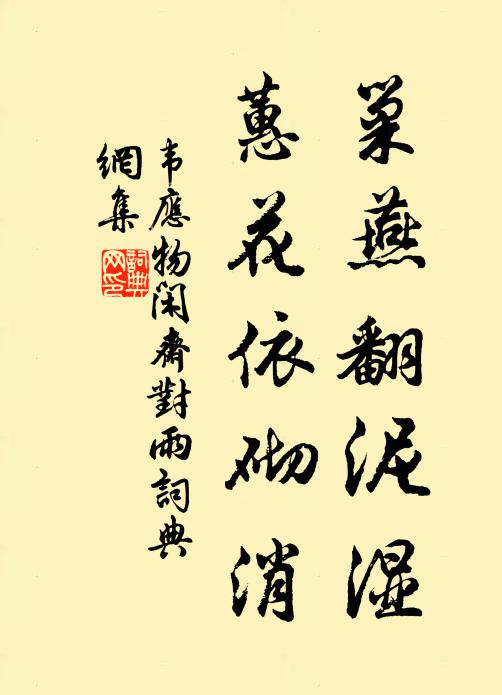 巢燕翻泥湿
蕙花依砌消
韦應物闲齋對雨詞典
網集
詞典
网印